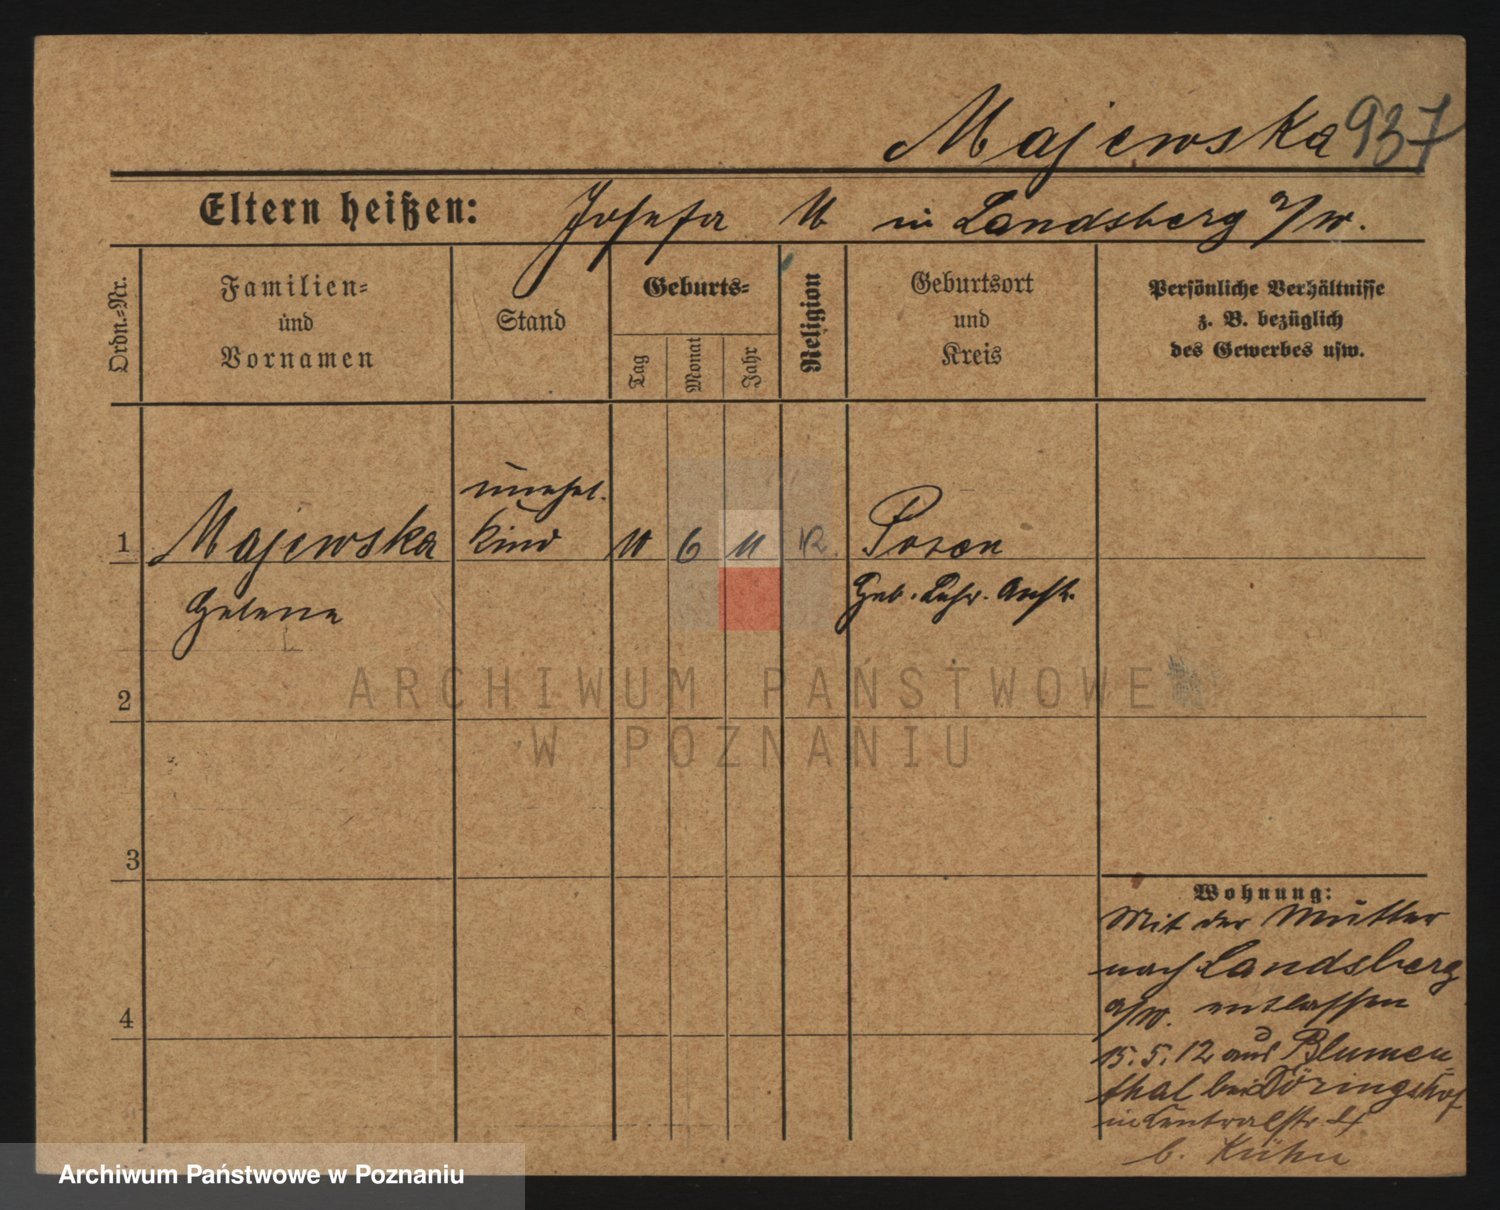 Majewska 937
Eltern heißen: Josefa M in Landsberg a/W.
Ordn.=Nr.
Familien=
und
Vornamen
Stand
Geburts=
Tag
Monat
Jahr
Religion
Geburtsort
und
Kreis
Persönliche Verhältnisse
z. B. bezüglich
des Gewerbes usw.
unehel.
1 Majewska Kind 10 6 11 K Posen
Helene Geb. Lehr. Anst.
ARCHIWUM PAŃSTWOWE
W POZNANIU
2
3
4
Wohnung:
Mit der Mutter
nach Landsberg
a/W. entlassen
15.5.12 aus Blumen
thal bei Döringshof
in Centralstr 4
b. Kühn
Archiwum Państwowe w Poznaniu